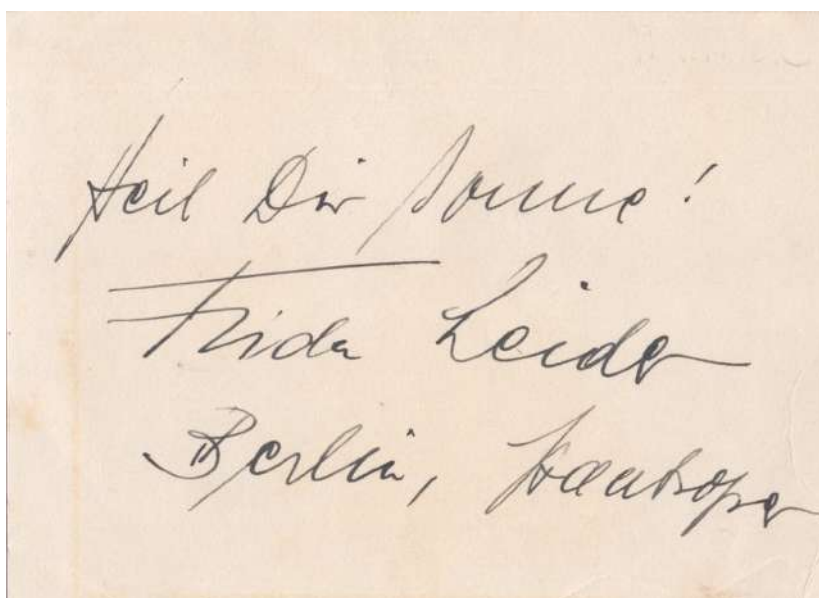 Heil Dir Sonne!
Frida Leider
Berlin, Staatsoper